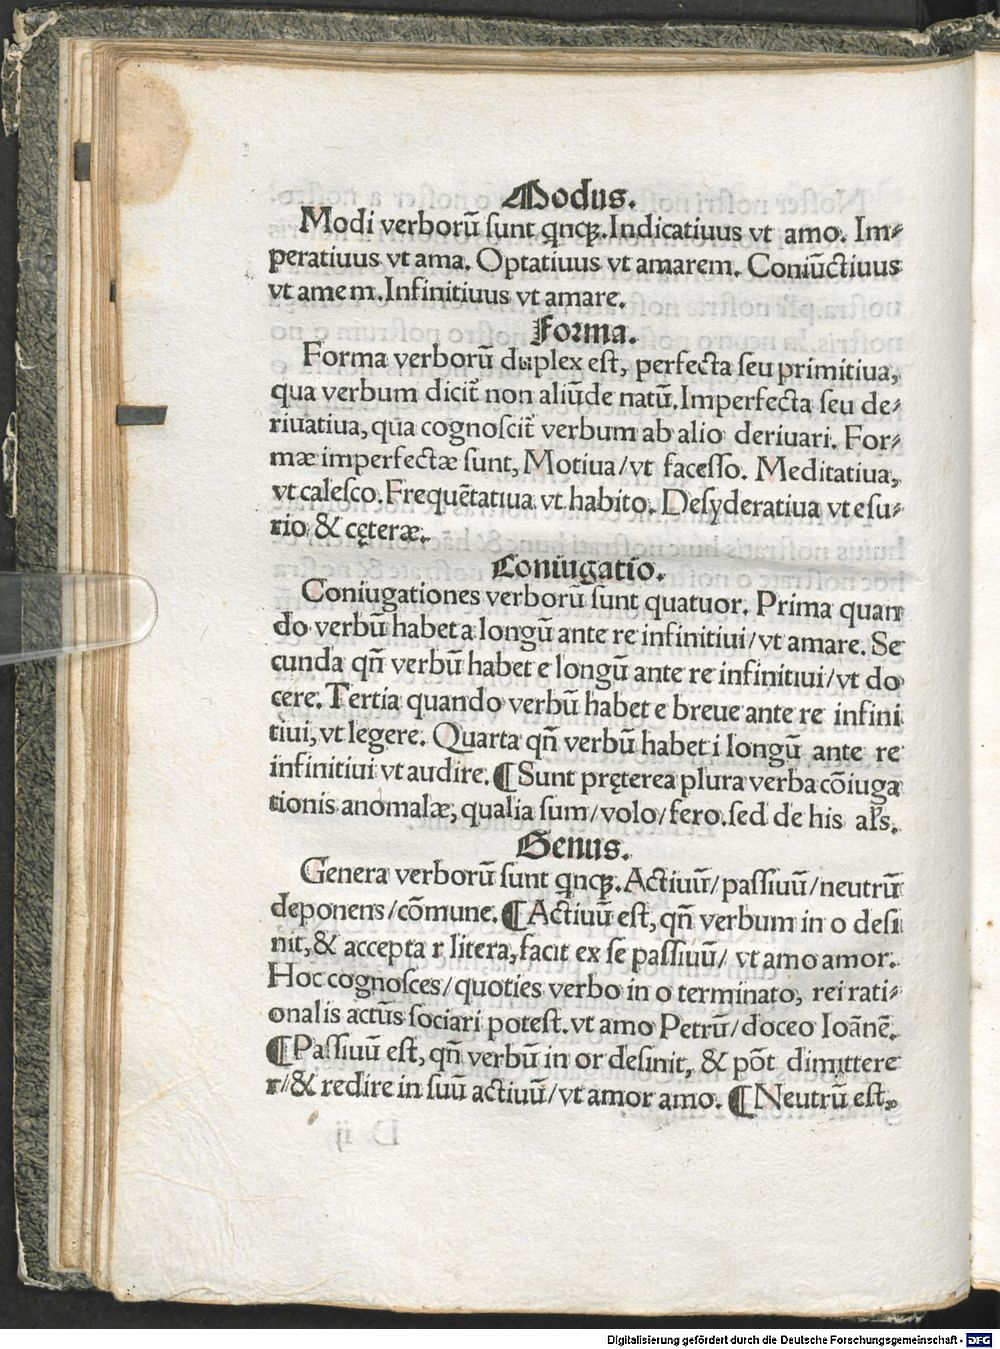 Modus.
Modi verborū sunt qnꝗ. Indicatiuus vt amo. Im⸗
peratiuus vt ama. Optatiuus vt amarem. Coniūctiuus
vt amem. Infinitiuus vt amare.
Forma.
Forma verborū duplex est, perfecta seu primitiua,
qua verbum dicit̄ non aliūde natū. Imperfecta seu de⸗
riuatiua, qua cognoscit̄ verbum ab alio deriuari. For⸗
mæ imperfectæ sunt, Motiua/vt facesso. Meditatiua,
vt calesco. Frequētatiua vt habito. Desyderatiua vt esu⸗
rio & cęteræ.
Coniugatio.
Coniugationes verborū sunt quatuor. Prima quan
do verbū habet a longū ante re infinitiui/vt amare. Se
cunda qn̄ verbū habet e longū ante re infinitiui/vt do
cere. Tertia quando verbū habet e breue ante re infini
tiui, vt legere. Quarta qn̄ verbū habet i longū ante re
infinitiui vt audire. ¶ Sunt pręterea plura verba cōiuga
tionis anomalæ, qualia sum/volo/fero. sed de his al̄s.
Genus.
Genera verborū sunt qnꝗ. Actiuū/passiuū/neutrū
deponens/cōmune. ¶ Actiuū est, qn̄ verbum in o desi
nit, & accepta r litera, facit ex se passiuū/ vt amo amor.
Hoc cognosces/quoties verbo in o terminato, rei rati⸗
onalis actūs sociari potest. vt amo Petrū/doceo Ioānē.
¶ Passiuū est, qn̄ verbū in or desinit, & pōt dimittere
r/& redire in suū actiuū/vt amor amo. ¶ Neutrū est,
Digitalisierung gefördert durch die Deutsche Forschungsgemeinschaft - DFG